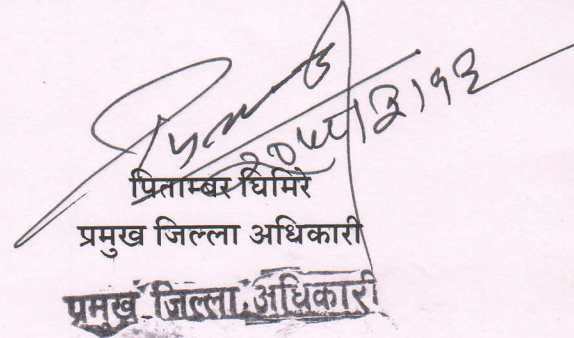 पिताम्बर घिमिरे
प्रमुख जिल्ला अधिकारी
प्रमुख जिल्ला अधिकारी